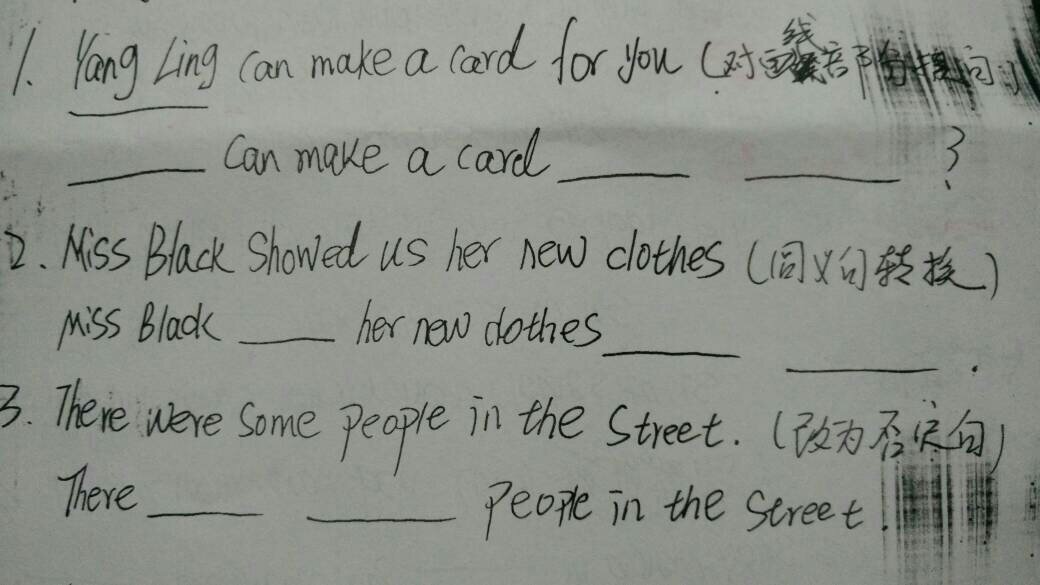 1. Yang Ling can make a card for you (对画线部分提问)
______ can make a card ______ ______ ?
2. Miss Black showed us her new clothes (同义句转换)
Miss Black ______ her new clothes ______ ______ .
3. There were some people in the street. (改为否定句)
There ______ ______ people in the street.